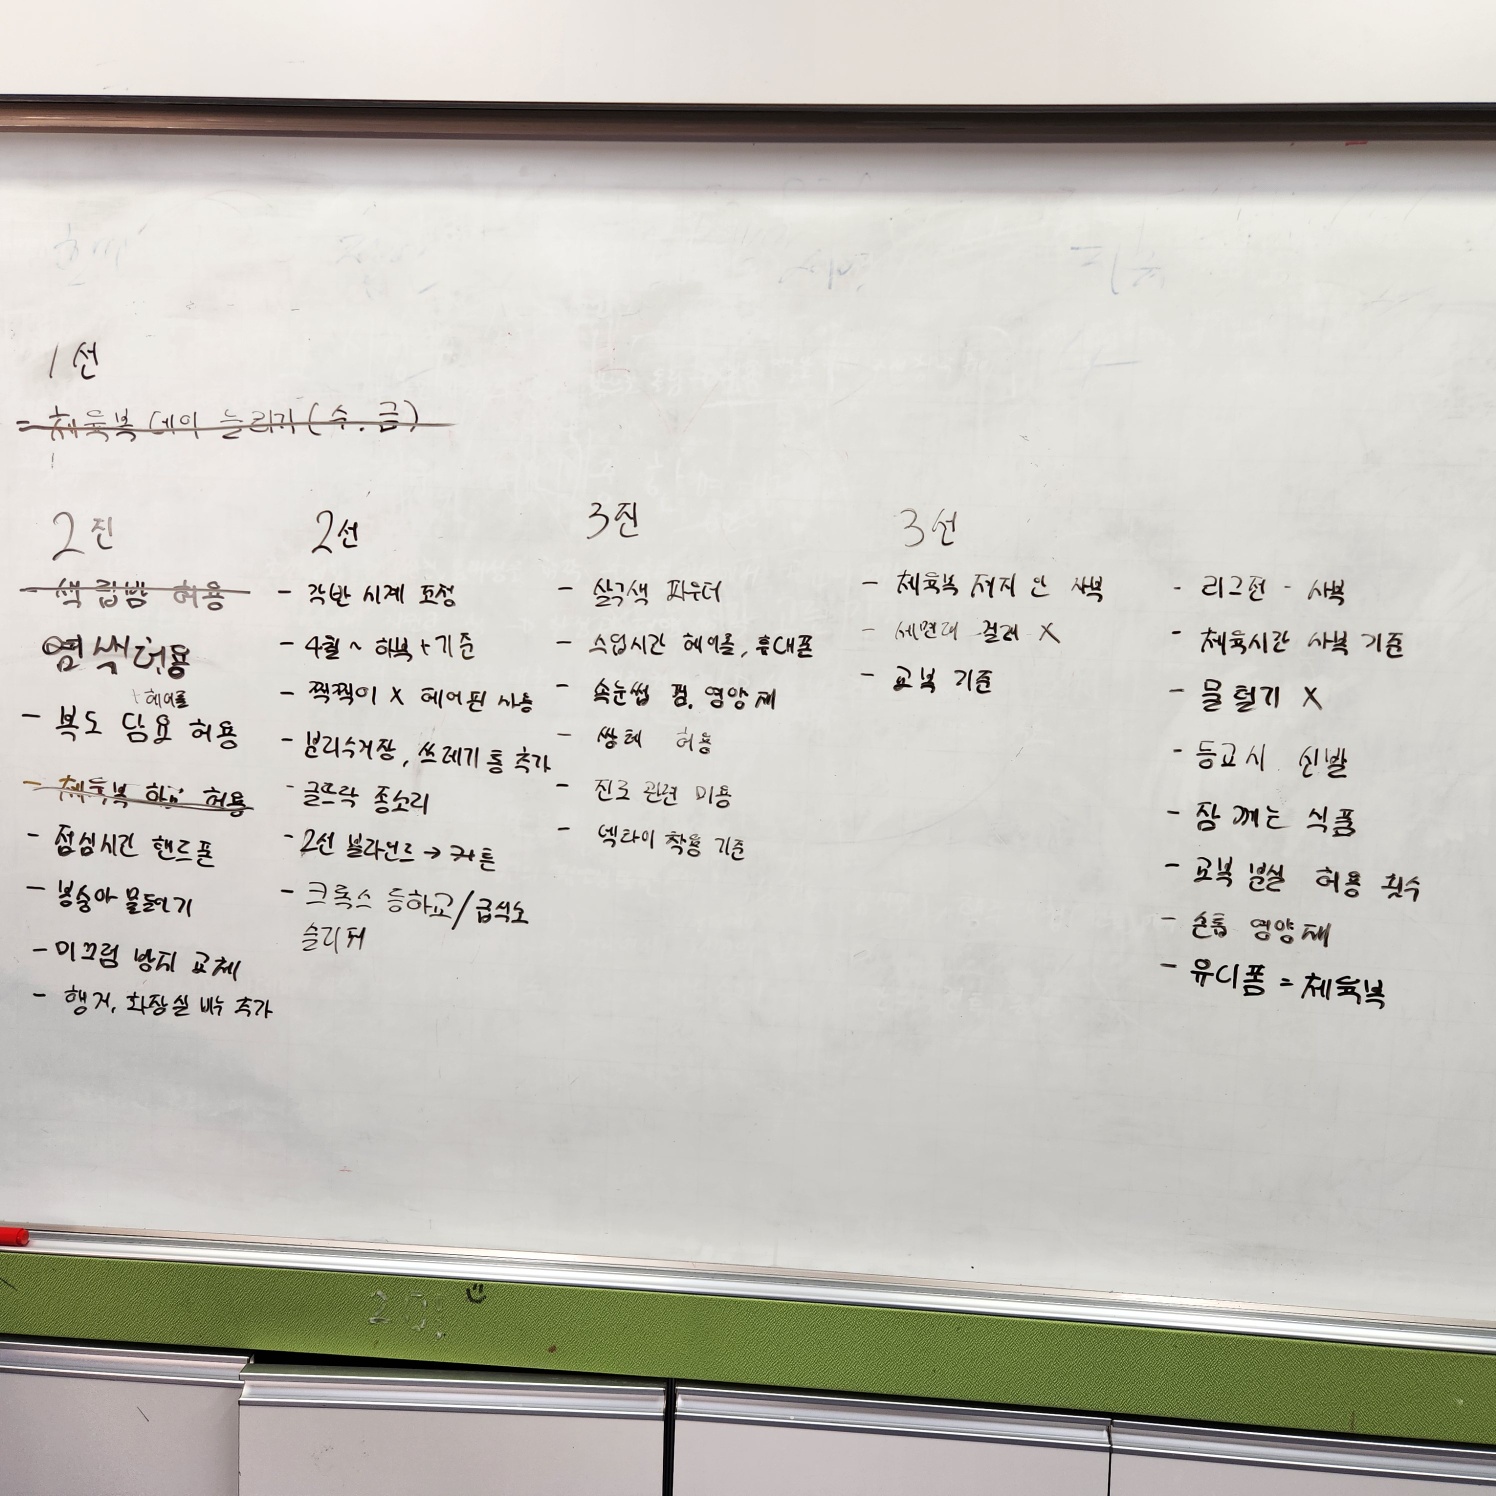 1선
= 체육복 데이 늘리기 (수.금)
2진
- 색 립밤 허용
염색 허용
+ 헤어롤
- 복도 담요 허용
- 체육복 하교 허용
- 점심시간 핸드폰
- 봉숭아 물들이기
- 미끄럼 방지 교체
- 행거, 화장실 비누 추가
2선
- 각반 시계 조정
- 4월 ~ 하복 + 기준
- 찍찍이 X 헤어핀 사용
- 분리수거장, 쓰레기통 추가
- 글뜨락 종소리
- 2선 블라인드 → 커튼
- 크록스 등하교/급식도
슬리퍼
3진
- 살구색 파우더
- 수업시간 헤어롤, 휴대폰
- 속눈썹 펌, 영양제
- 쌍테 허용
- 진로 관련 미용
- 넥타이 착용 기준
3선
- 체육복 져지 안 사복
- 세면대 걸레 X
- 교복 기준
- 리그전 - 사복
- 체육시간 사복 기준
- 물 털기 X
- 등교시 신발
- 잠 깨는 식품
- 교복 분실 허용 횟수
- 손톱 영양제
- 유디폼 = 체육복